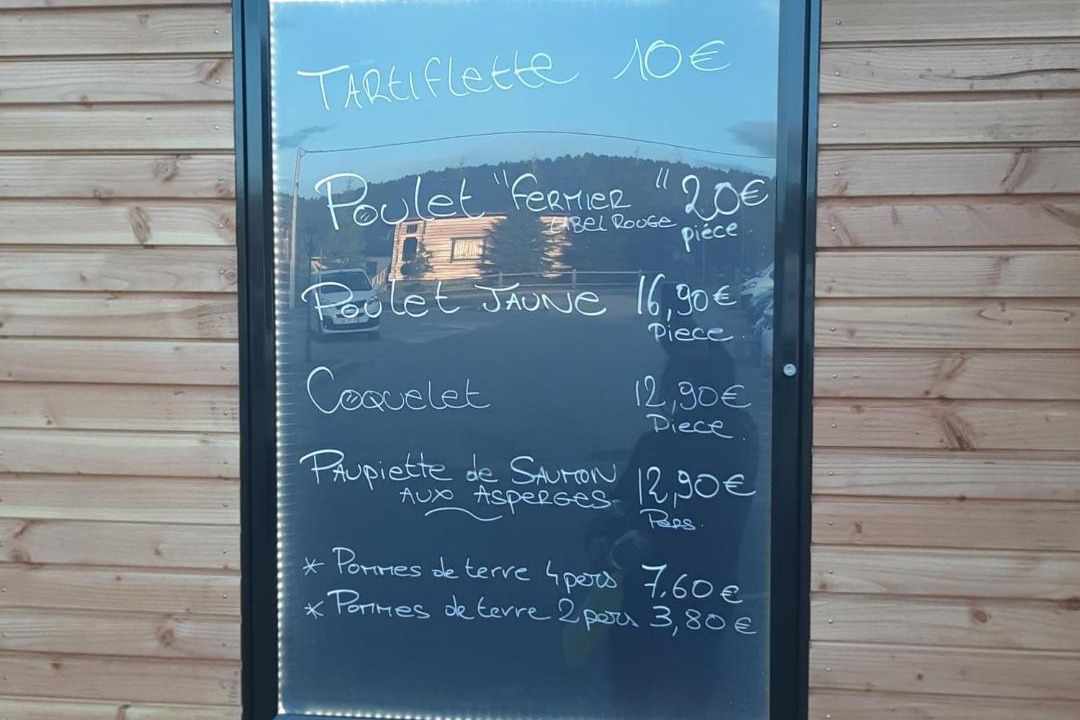 Tartiflette 10€
Poulet "Fermier" 20€
Label Rouge pièce
Poulet Jaune 16,90€
Piece.
Coquelet 12,90€
Piece.
Paupiette de Saumon 12,90€
aux Asperges
Pers.
* Pommes de terre 4 pers 7,60€
* Pommes de terre 2 pers 3,80€